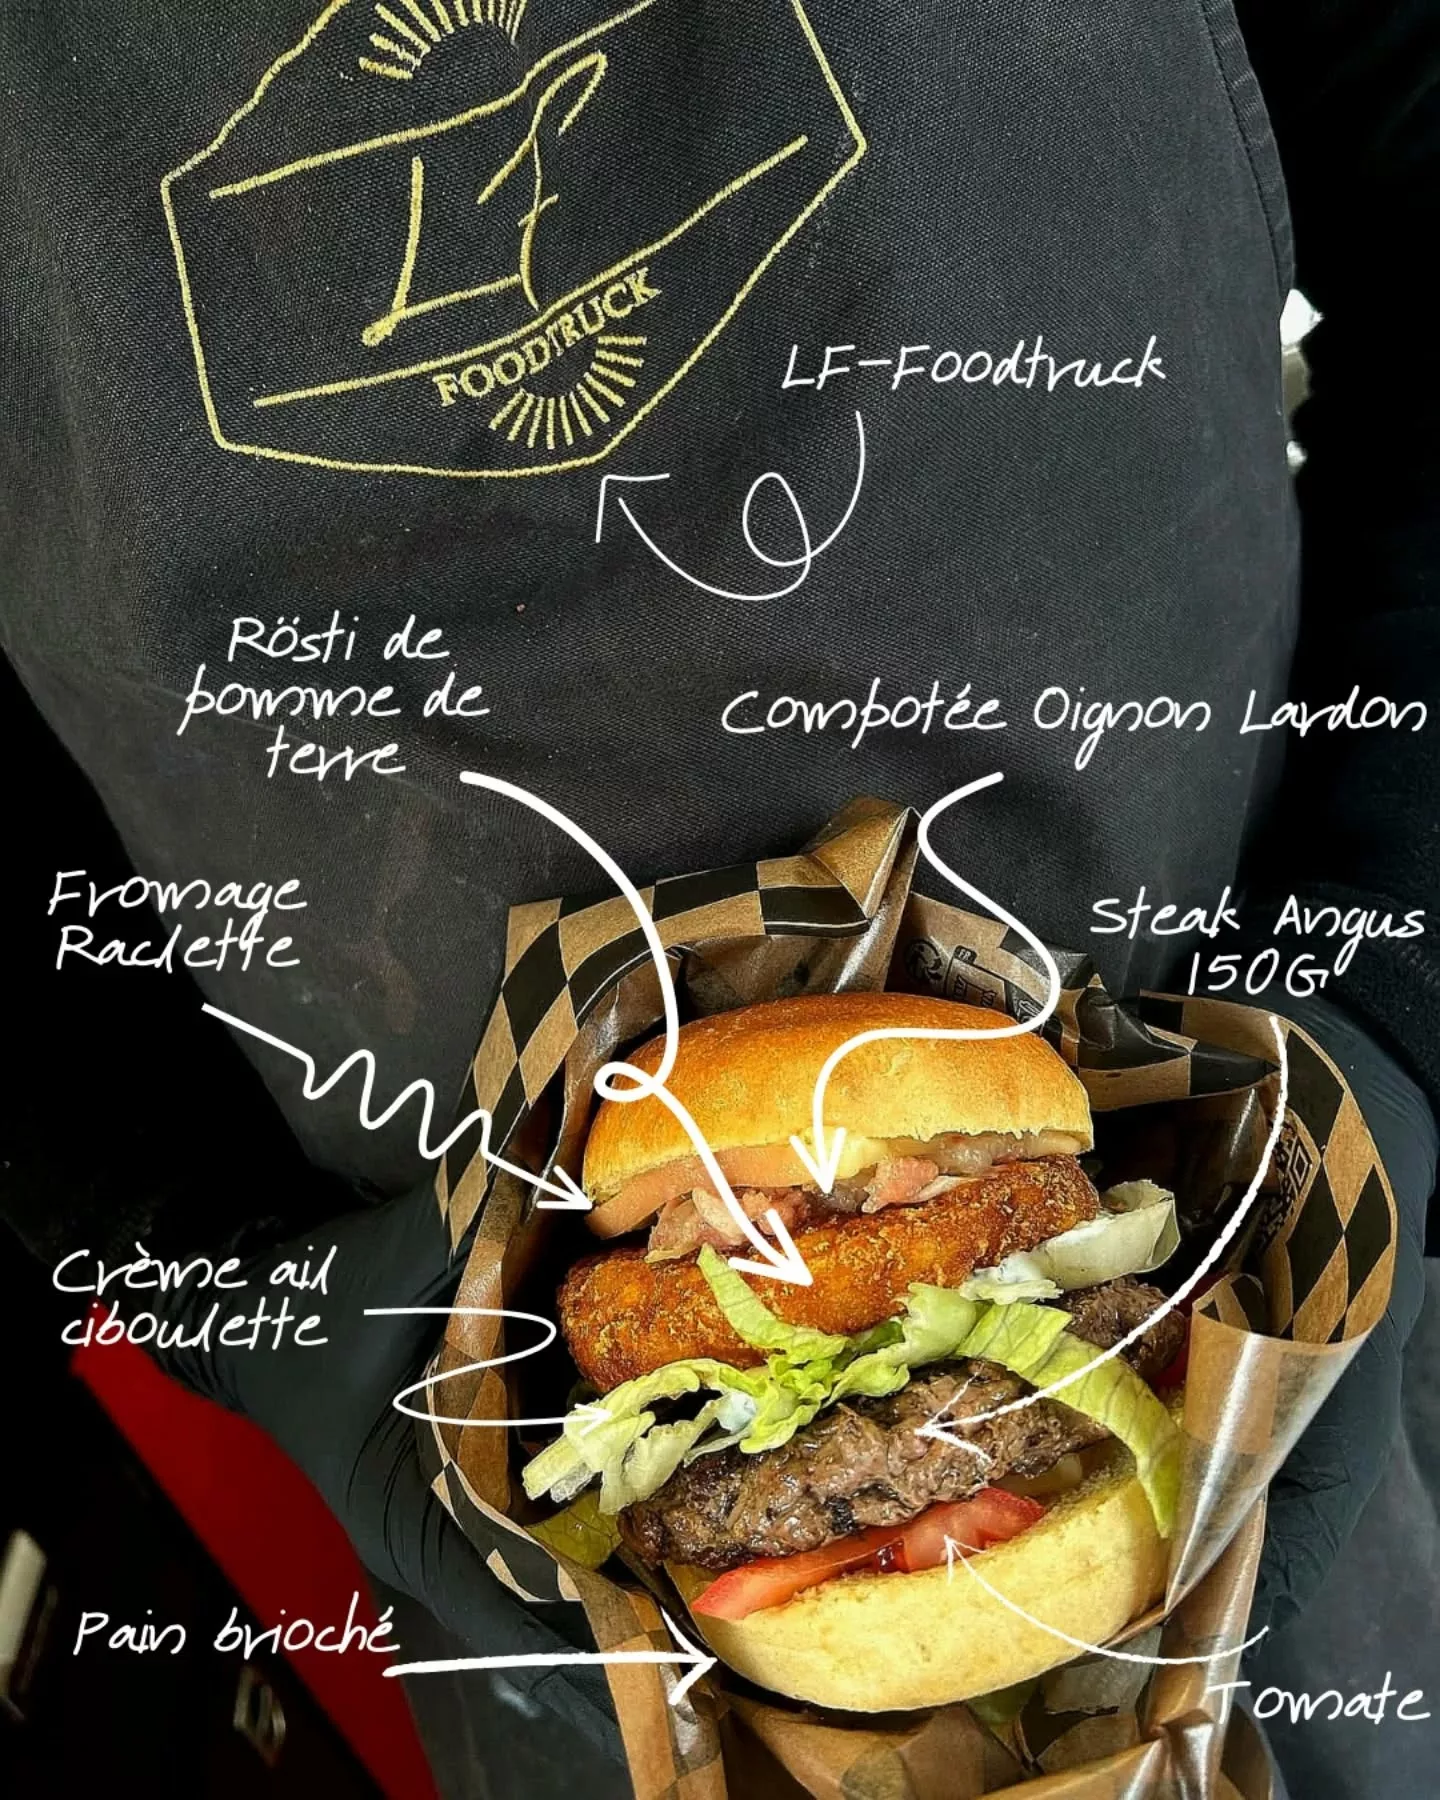 LF
FOODTRUCK
LF-Foodtruck
Rösti de
pomme de
terre
Compotée Oignon Lardon
Fromage
Raclette
Steak Angus
150G
Crème ail
ciboulette
Pain brioché
Tomate